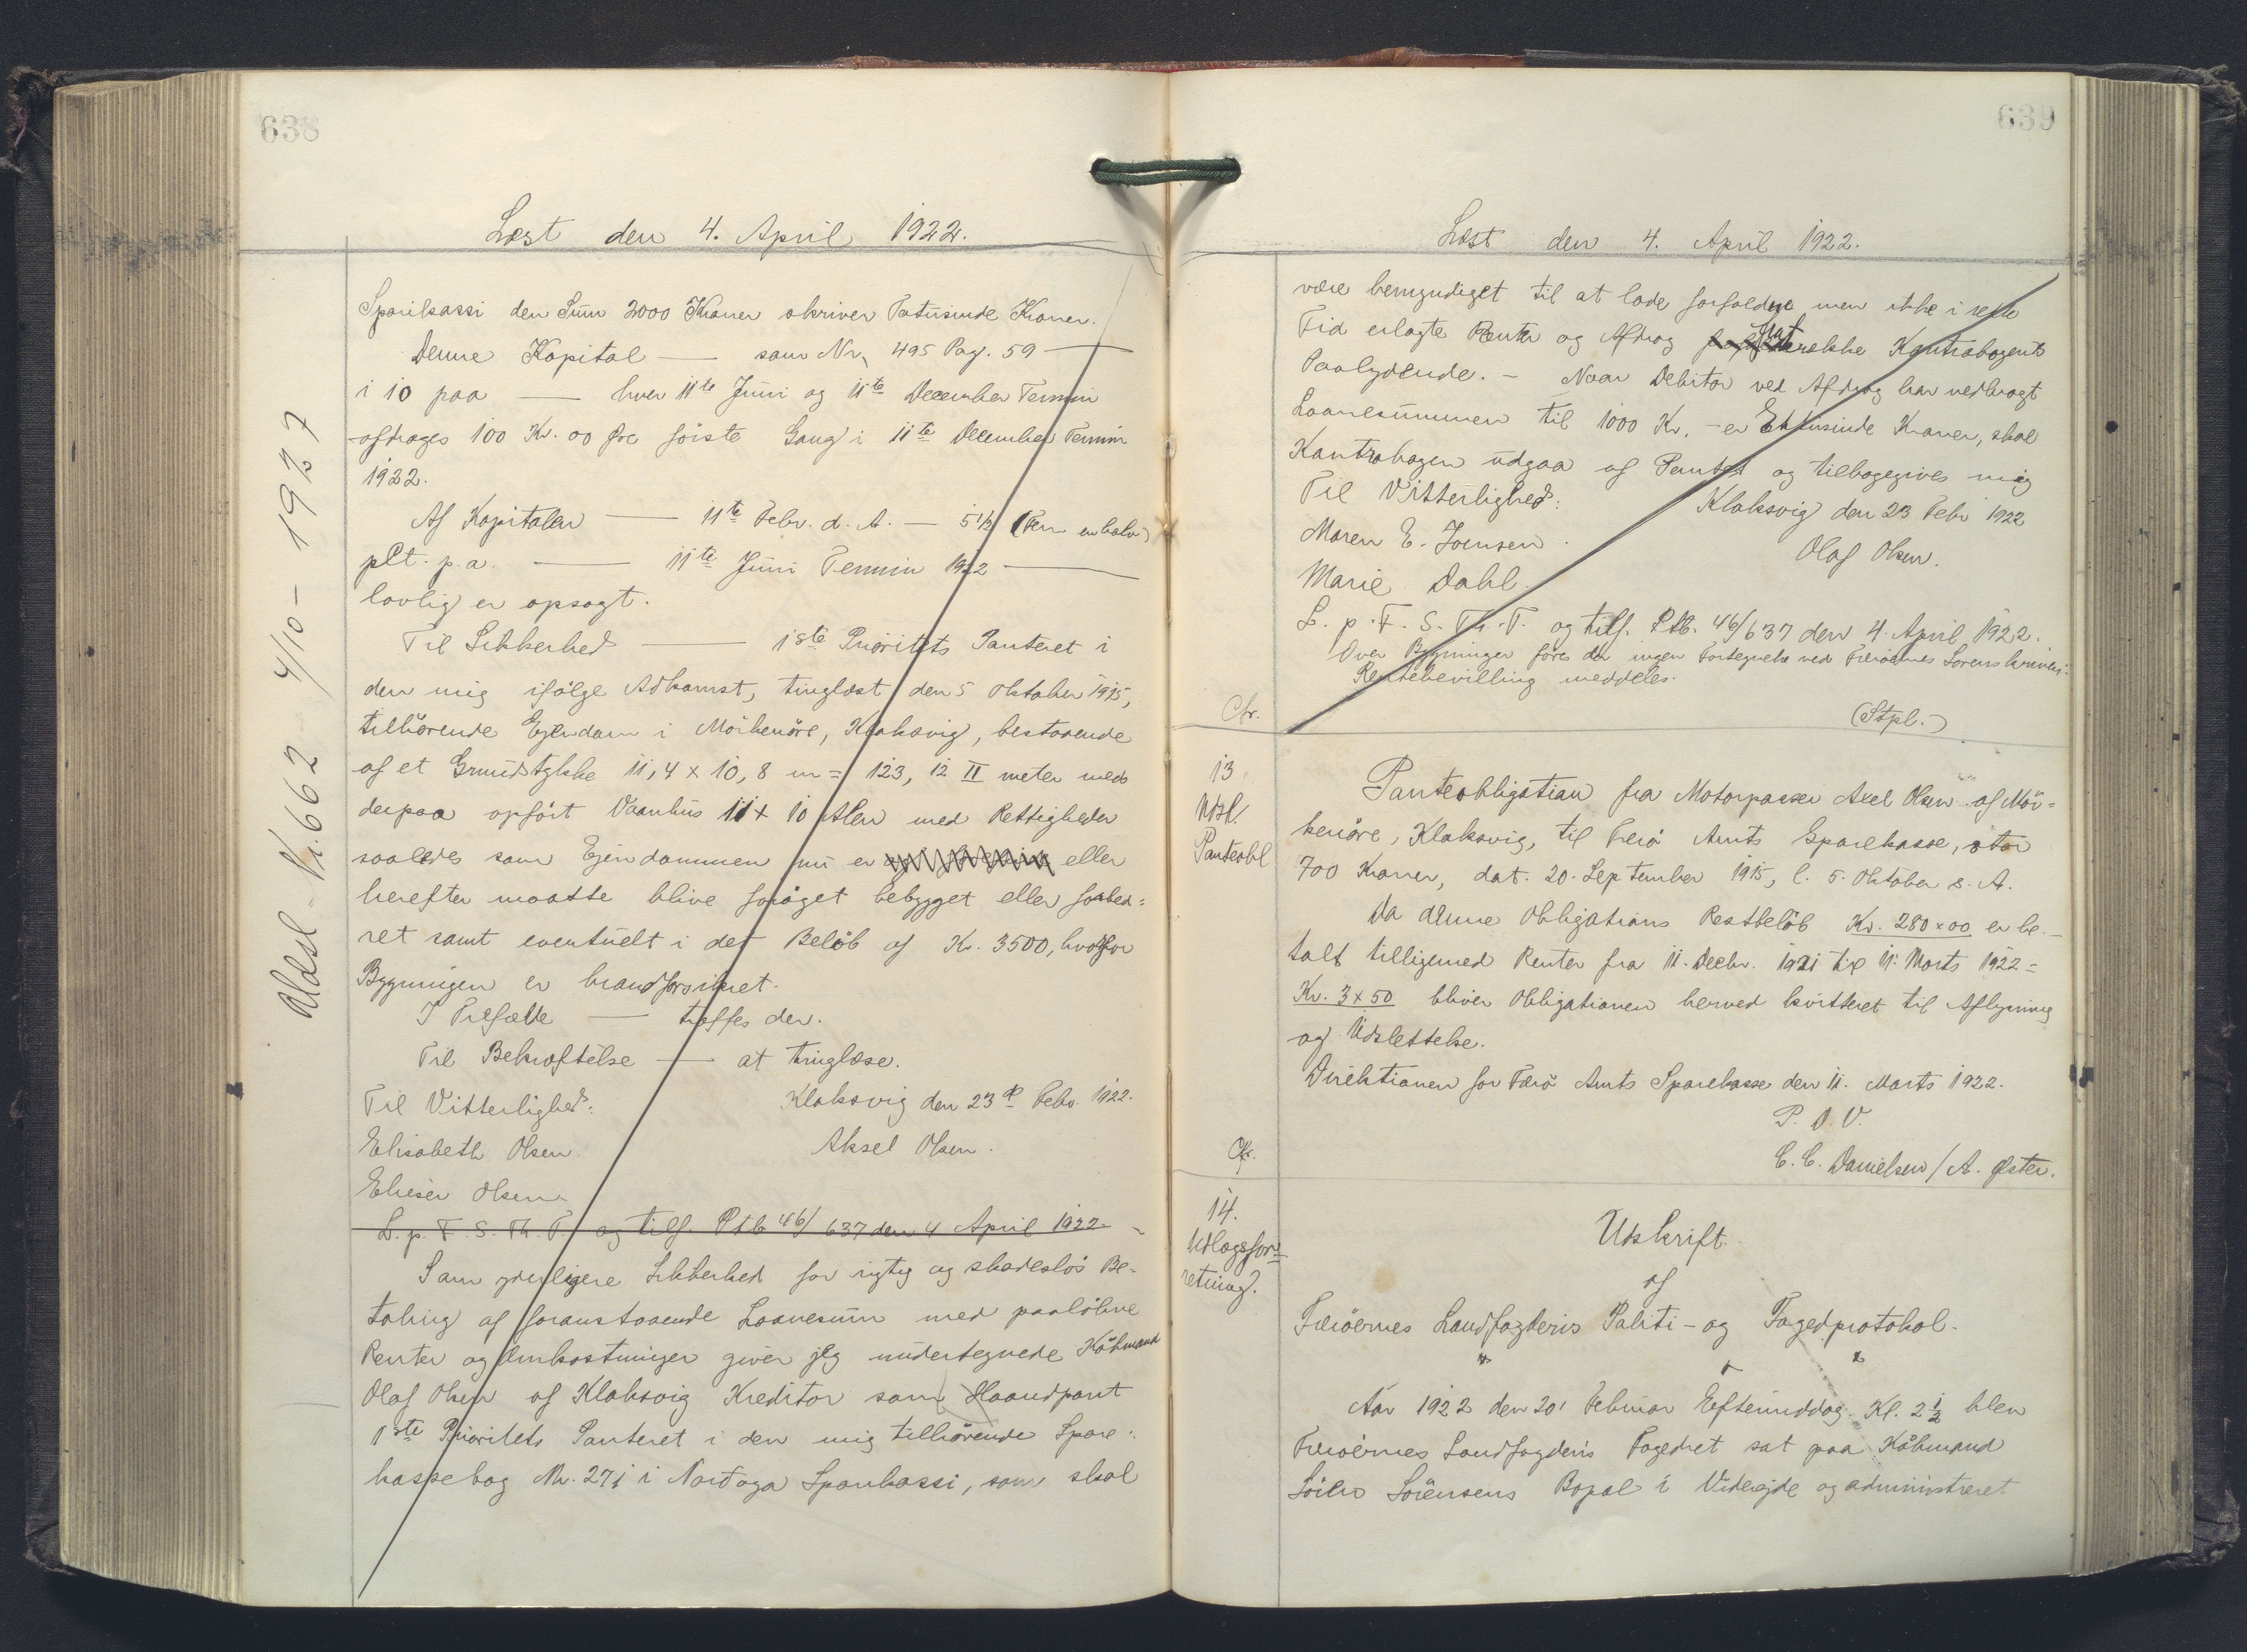 638
Læst den 4. April 1922.
Sparikassi den Sum 2000 Kroner skriver Totusinde Kroner.
Denne Kapital — som Nr. 495 Pag. 59 —
i 10 paa — hver 11te Juni og 11te December Termin
afdrages 100 Kr. 00 Øre förste Gang i 11te December Termin
1922.
Af Kapitalen — 11te Febr. d. A. — 5½ (Fem en halv)
pCt. p.a. — 11te Juni Termin 1922 —
lovlig er opsagt.
Til Sikkerhed — 1ste Prioritets Panteret i
den mig ifölge Adkomst, tinglæst den 5 Oktober 1915,
tilhörende Ejendom i Mörkenöre, Klaksvig, bestaaende
af et Grundstykke 11,4 x 10,8 m = 123,12 □ meter med
derpaa opfört Vaanhus 11 x 10 Alen med Rettigheder
saaledes som Ejendommen nu er eller
herefter maatte blive foröget bebygget eller forbed=
ret samt eventuelt i det Belöb af Kr. 3500, hvorfor
Bygningen er brandforsikret.
I Tilfælde — træffes der.
Til Bekræftelse — at tinglæse.
Til Vitterlighed: Klaksvig den 23d Febr. 1922.
Elisabeth Olsen. Aksel Olsen.
Elieser Olsen
L. p. F. S. Th. T. og tilf. Ptb 46/637 den 4 April 1922
Som yderligere Sikkerhed for rigtig og skadeslös Be-
taling af foranstaaende Laanesum med paalöbne
Renter og Omkostninger giver jeg undertegnede Köbmand
Olaf Olsen af Klaksvig Kreditor som Haandpant
1ste Prioritets Panteret i den mig tilhörende Spare-
kassebog Nr. 271 i Nordoya Sparikassi, som skal
Aflæst Nr. 662 4/10 - 1927
639
Læst den 4. April 1922.
være bemyndiget til at lade forfaldne men ikke i rette
Tid erlagte Renter og Afdrag Kontrabogens
Paalydende. - Naar Debitor ved Afdrag har nedbragt
Laanesummen til 1000 Kr. - er Ettusinde Kroner, skal
Kontrabogen udgaa af Pantet og tilbagegives mig
Til Vitterlighed: Klaksvig den 23 Febr 1922
Maren E. Joensen. Olaf Olsen.
Marie Dahl.
L. p. F. S. Th. T. og tilf. Ptb. 46/637 den 4. April 1922.
Over Bygninger föres der ingen Fortegnelse ved Færöernes Sorenskriveri.
Rentebevilling meddeles.
(Stpl.)
Cfr.
13
Udsl.
Panteobl
Panteobligation fra Motorpasser Axel Olsen af Mör=
kenöre, Klaksvig, til Færö Amts Sparekasse, stor
700 Kroner, dat. 20. September 1915, l. 5. Oktober s. A.
Da denne Obligations Restbelöb Kr. 280 x 00 er be-
talt tilligemed Renter fra 11. Decbr. 1921 til 11. Marts 1922 =
Kr. 3 x 50 bliver Obligationen herved kvitteret til Aflysning
og Udslettelse.
Direktionen for Færö Amts Sparekasse den 11. Marts 1922.
P. D. V.
C. C. Danielsen / A. Øster.
Cfr.
14.
Udlægsfor=
retning.
Udskrift
af
Færöernes Landfogderis Politi- og Fogedprotokol.
Aar 1922 den 20' Februar Eftermiddag Kl. 2½ blev
Færöernes Landfogderis Fogedret sat paa Köbmand
Sören Sörensens Bopæl i Videreje og administreret